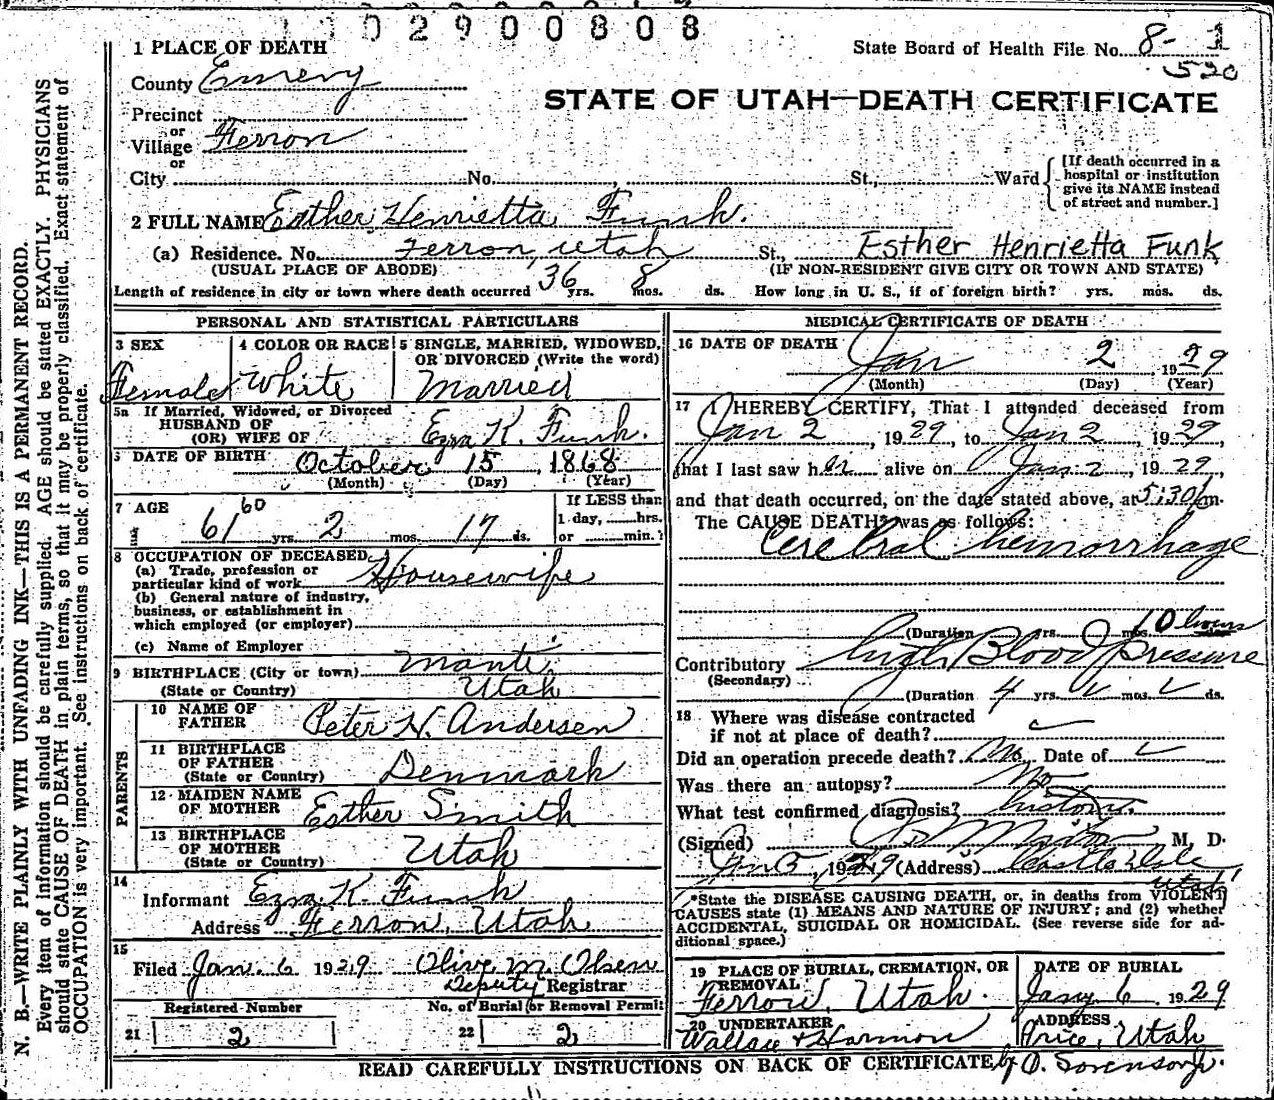 1 0 2 9 0 0 8 0 8
1 PLACE OF DEATH
State Board of Health File No. 8- 1
520
County Emery
STATE OF UTAH—DEATH CERTIFICATE
Precinct
or
Village Ferron
or
City No. St., Ward
[If death occurred in a
hospital or institution
give its NAME instead
of street and number.]
2 FULL NAME Esther Henrietta Funk.
(a) Residence. No. Ferron, Utah St., Esther Henrietta Funk
(USUAL PLACE OF ABODE) (IF NON-RESIDENT GIVE CITY OR TOWN AND STATE)
Length of residence in city or town where death occurred 36 yrs. 8 mos. ds. How long in U. S., if of foreign birth? yrs. mos. ds.
PERSONAL AND STATISTICAL PARTICULARS
3 SEX 4 COLOR OR RACE 5 SINGLE, MARRIED, WIDOWED,
OR DIVORCED (Write the word)
Female White Married
5a If Married, Widowed, or Divorced
HUSBAND OF
(OR) WIFE OF Ezra K. Funk.
DATE OF BIRTH October 15, 1868
(Month) (Day) (Year)
7 AGE 60 If LESS than
61 yrs. 2 mos. 17 ds. 1 day, hrs.
or min.?
8 OCCUPATION OF DECEASED
(a) Trade, profession or
particular kind of work Housewife
(b) General nature of industry,
business, or establishment in
which employed (or employer)
(c) Name of Employer
9 BIRTHPLACE (City or town) Manti,
(State or Country) Utah
PARENTS
10 NAME OF
FATHER Peter H. Andersen
11 BIRTHPLACE
OF FATHER
(State or Country) Denmark
12 MAIDEN NAME
OF MOTHER Esther Smith
13 BIRTHPLACE
OF MOTHER
(State or Country) Utah
14
Informant Ezra K. Funk
Address Ferron, Utah
15
Filed Jan. 6 1929 Olive M. Olsen
Deputy Registrar
Registered Number No. of Burial or Removal Permit
21 2 22 2
MEDICAL CERTIFICATE OF DEATH
16 DATE OF DEATH
Jan 2 1929
(Month) (Day) (Year)
17 I HEREBY CERTIFY, That I attended deceased from
Jan 2, 1929, to Jan 2, 1929,
that I last saw her alive on Jan 2, 1929,
and that death occurred, on the date stated above, at 5:30 p m.
The CAUSE DEATH* was as follows:
Cerebral hemorrhage
(Duration yrs. mos. 10 hours
Contributory High Blood pressure
(Secondary)
(Duration 4 yrs. mos. ds.
18 Where was disease contracted
if not at place of death?
Did an operation precede death? No. Date of
Was there an autopsy? No
What test confirmed diagnosis? history.
(Signed) M. D.
Jan 5, 1929 (Address) Castle Dale
Utah
*State the DISEASE CAUSING DEATH, or, in deaths from VIOLENT
CAUSES state (1) MEANS AND NATURE OF INJURY; and (2) whether
ACCIDENTAL, SUICIDAL OR HOMICIDAL. (See reverse side for ad-
ditional space.)
19 PLACE OF BURIAL, CREMATION, OR DATE OF BURIAL
REMOVAL
Ferron, Utah. Jany 6, 1929
20 UNDERTAKER ADDRESS
Wallace & Harmon Price, Utah
READ CAREFULLY INSTRUCTIONS ON BACK OF CERTIFICATE by O. Sorenson Jr.
N. B.—WRITE PLAINLY WITH UNFADING INK—THIS IS A PERMANENT RECORD.
Every item of information should be carefully supplied. AGE should be stated EXACTLY. PHYSICIANS
should state CAUSE OF DEATH in plain terms, so that it may be properly classified. Exact statement of
OCCUPATION is very important. See instructions on back of certificate.